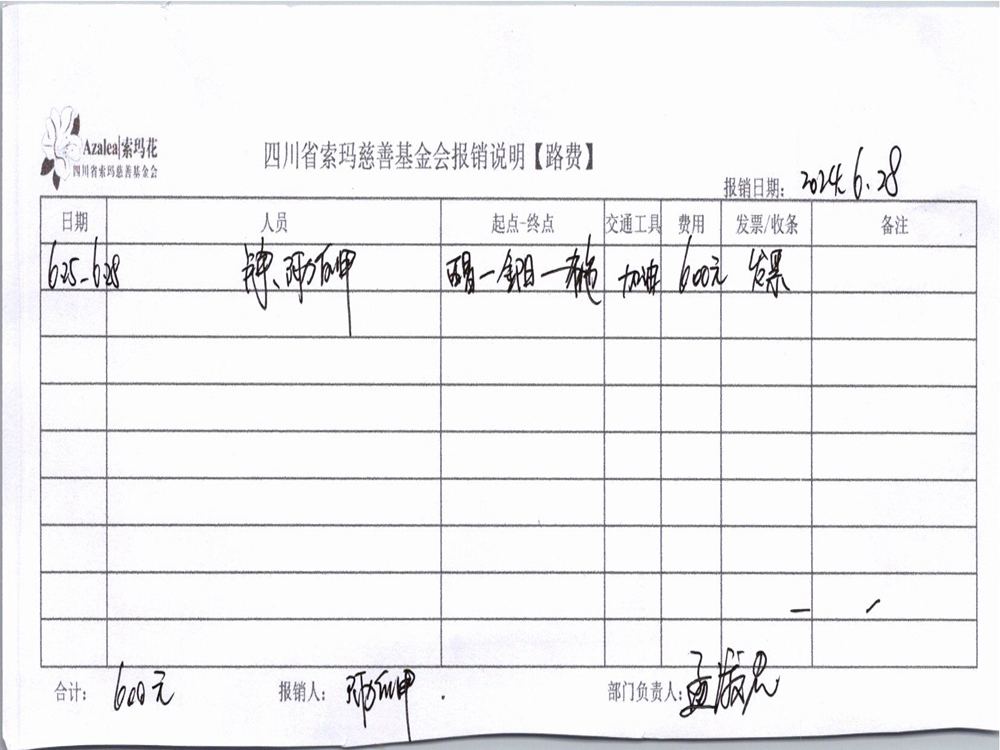 Azalea|索玛花
四川省索玛慈善基金会
四川省索玛慈善基金会报销说明【路费】
报销日期: 2024.6.28
日期 人员 起点-终点 交通工具 费用 发票/收条 备注
6.25-6.28 西昌一 加油 600元 发票
合计: 600元 报销人: 部门负责人: